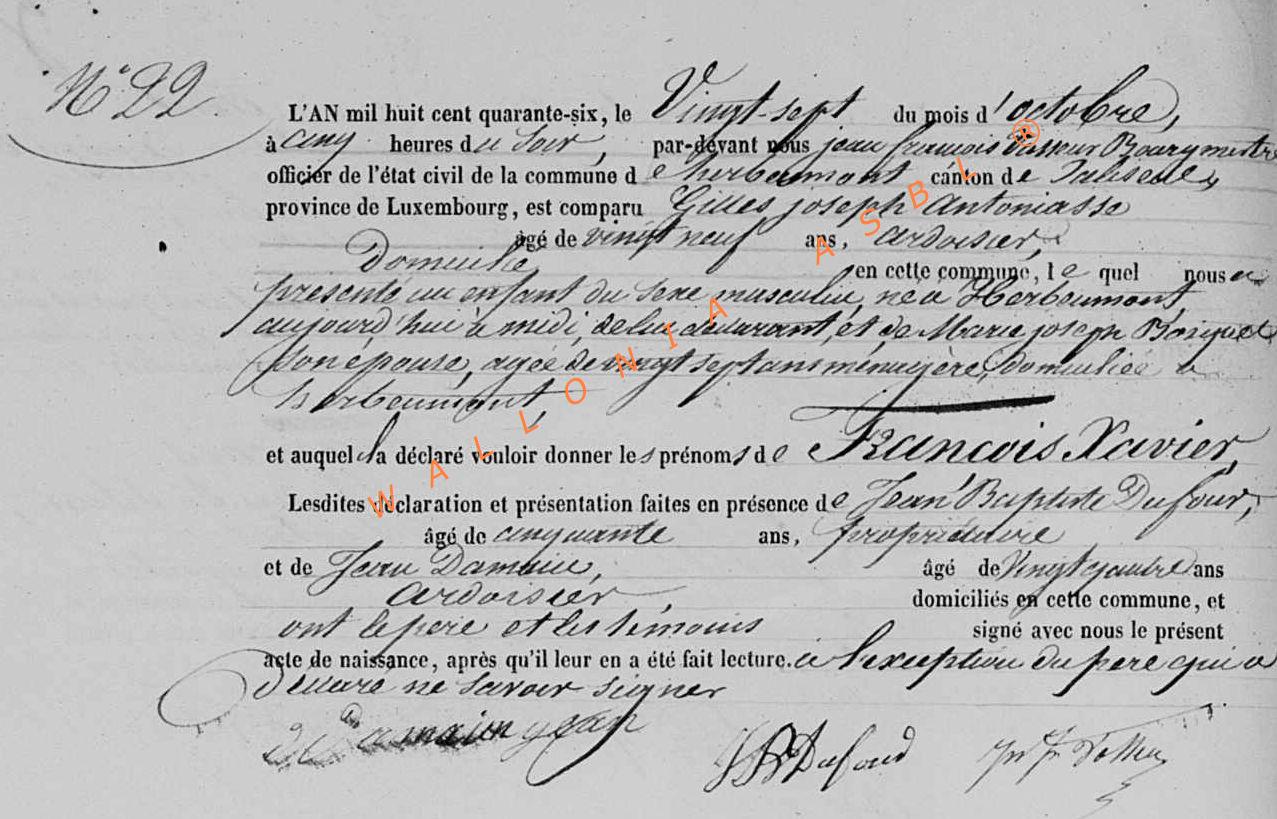 N° 22
L'AN mil huit cent quarante-six, le Vingt-sept du mois d'octobre,
à cinq heures du soir, par-devant nous jean françois Bourgmestre
officier de l'état civil de la commune de herbeumont canton de Paliseul
province de Luxembourg, est comparu Gilles joseph Antoniasse
âgé de vingt neuf ans, ardoisier,
Domicilié en cette commune, lequel nous a
presenté un enfant du sexe masculin, né à Herbeumont,
aujourd'hui à midi, de lui déclarant, et de Marie joseph
son épouse, agée de vingt sept ans ménagère, domiciliée a
herbeumont,
et auquel il a déclaré vouloir donner les prénoms de François Xavier,
Lesdites déclaration et présentation faites en présence de Jean Baptiste Dufour,
âgé de cinquante ans, propriétaire
et de Jean Damain, âgé de Vingt quatre ans
ardoisier, domiciliés en cette commune, et
ont le pere et les témoins signé avec nous le présent
acte de naissance, après qu'il leur en a été fait lecture. a l'exception du pere qui a
déclaré ne savoir signer
JB Dufour
WALLONIA ASBL ®